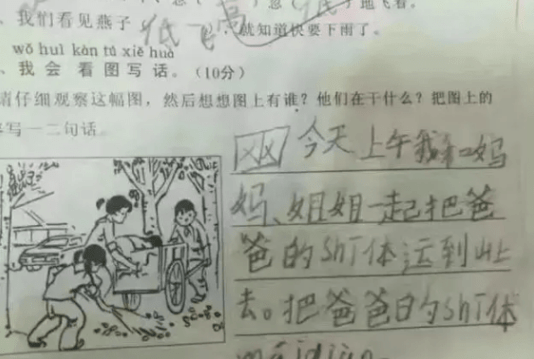 、我们看见燕子 低飞 ，就知道快要下雨了。
wǒ huì kàn tú xiě huà
、我 会 看 图 写 话。（10分）
请仔细观察这幅图，然后想想图上有谁？他们在干什么？把图上的
写一二句话。
今天上午我和妈
妈、姐姐一起把爸
爸的shT体运到山上
去。把爸爸的shT体
mái